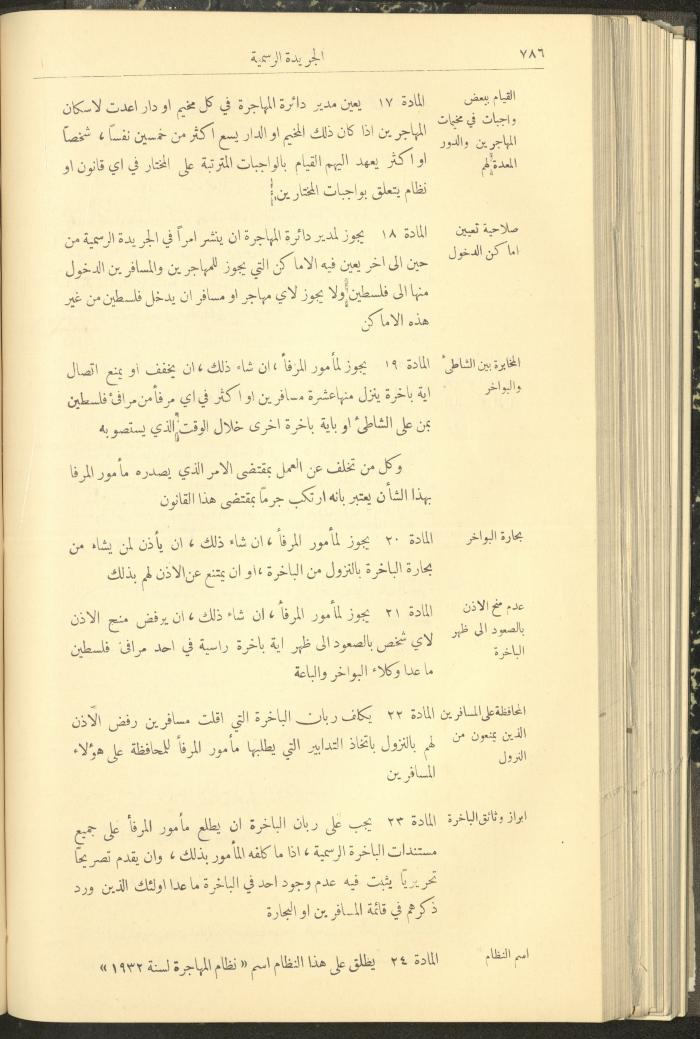 ٧٨٦
الجريدة الرسمية
القيام ببعض
واجبات في مخيمات
المهاجرين والدور
المعدة لهم
المادة ١٧ يعين مدير دائرة المهاجرة في كل مخيم او دار اعدت لاسكان
المهاجرين اذا كان ذلك المخيم او الدار يسع اكثر من خمسين نفساً ، شخصاً
او اكثر يعهد اليهم القيام بالواجبات المترتبة على المختار في اي قانون او
نظام يتعلق بواجبات المختارين.
صلاحية تعيين
اماكن الدخول
المادة ١٨ يجوز لمدير دائرة المهاجرة ان ينشر امراً في الجريدة الرسمية من
حين الى اخر يعين فيه الاماكن التي يجوز للمهاجرين والمسافرين الدخول
منها الى فلسطين ولا يجوز لاي مهاجر او مسافر ان يدخل فلسطين من غير
هذه الاماكن
المخابرة بين الشاطئ
والبواخر
المادة ١٩ يجوز لمأمور المرفأ ، ان شاء ذلك ، ان يخفف او يمنع اتصال
اية باخرة ينزل منها عشرة مسافرين او اكثر في اي مرفأ من مرافئ فلسطين
بمن على الشاطئ او باية باخرة اخرى خلال الوقت الذي يستصوبه
وكل من تخلف عن العمل بمقتضى الامر الذي يصدره مأمور المرفا
بهذا الشأن يعتبر بانه ارتكب جرماً بمقتضى هذا القانون
بحارة البواخر
المادة ٢٠ يجوز لمأمور المرفأ ، ان شاء ذلك ، ان يأذن لمن يشاء من
بحارة الباخرة بالنزول من الباخرة ، او ان يمتنع عن الاذن لهم بذلك
عدم منح الاذن
بالصعود الى ظهر
الباخرة
المادة ٢١ يجوز لمأمور المرفأ ، ان شاء ذلك ، ان يرفض منح الاذن
لاي شخص بالصعود الى ظهر اية باخرة راسية في احد مرافئ فلسطين
ما عدا وكلاء البواخر والباعة
المحافظة على المسافرين
الذين يمنعون من
النزول
المادة ٢٢ يكلف ربان الباخرة التي اقلت مسافرين رفض الاذن
لهم بالنزول باتخاذ التدابير التي يطلبها مأمور المرفأ للمحافظة على هؤلاء
المسافرين
ابراز وثائق الباخرة
المادة ٢٣ يجب على ربان الباخرة ان يطلع مأمور المرفأ على جميع
مستندات الباخرة الرسمية ، اذا ما كلفه المأمور بذلك ، وان يقدم تصريحاً
تحريرياً يثبت فيه عدم وجود احد في الباخرة ما عدا اولئك الذين ورد
ذكرهم في قائمة المسافرين او البحارة
اسم النظام
المادة ٢٤ يطلق على هذا النظام اسم « نظام المهاجرة لسنة ١٩٣٢ »